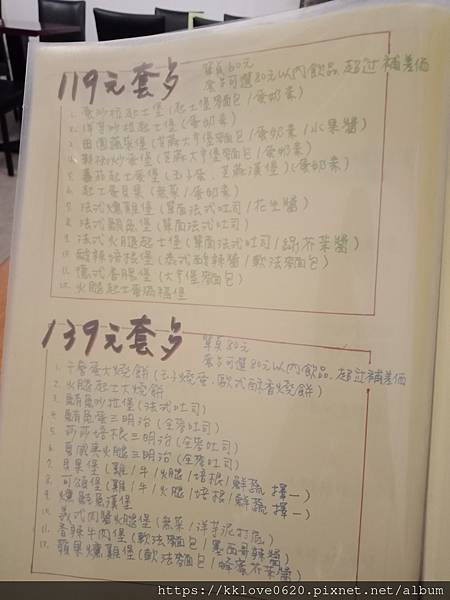 119元套餐
單點60元
套餐可選80元以內飲品,超過補差價
1. 蛋沙拉起士堡(起士堡麵包/蛋奶素)
2. 洋芋沙拉起士堡(蛋奶素)
3. 田園蔬菜堡(芝麻大亨堡麵包/蛋奶素/水果醬)
4. 辣椒炒蛋堡(芝麻大亨堡麵包/蛋奶素)
5. 蕃茄起士蛋堡(玉子蛋、芝麻漢堡)(蛋奶素)
6. 起士蛋貝果(無菜/蛋奶素)
7. 法式燻雞堡(單面法式吐司/花生醬)
8. 法式鮪魚堡(單面法式吐司)
9. 法式火腿起士堡(單面法式吐司/綠芥茉醬)
10. 酸辣培根堡(泰式酸辣醬/軟法麵包)
11. 德式香腸堡(大亨堡麵包)
12. 火腿起士蛋滿福堡
139元套餐
單點80元
套餐可選80元以內飲品,超過補差價
1. 千層蛋大燒餅(玉子燒蛋、歐式酥香燒餅)
2. 火腿起士大燒餅
3. 鮪魚沙拉堡(法式吐司)
4. 鮪魚蛋三明治(全麥吐司)
5. 莎莎培根三明治(全麥吐司)
6. 夏威夷火腿三明治(全麥吐司)
7. 貝果堡(雞/牛/火腿/培根/鮮蔬 擇一)
8. 可頌堡(雞/牛/火腿/培根/鮮蔬 擇一)
9. 燻鮭魚漢堡
10. 義式肉醬火腿堡(無菜/洋芋泥打底)
11. 香辣牛肉堡(軟法麵包/墨西哥辣醬)
12. 蘋果燻雞堡(軟法麵包/蜂蜜芥茉醬)
https://kklove0620.pixnet.net/album